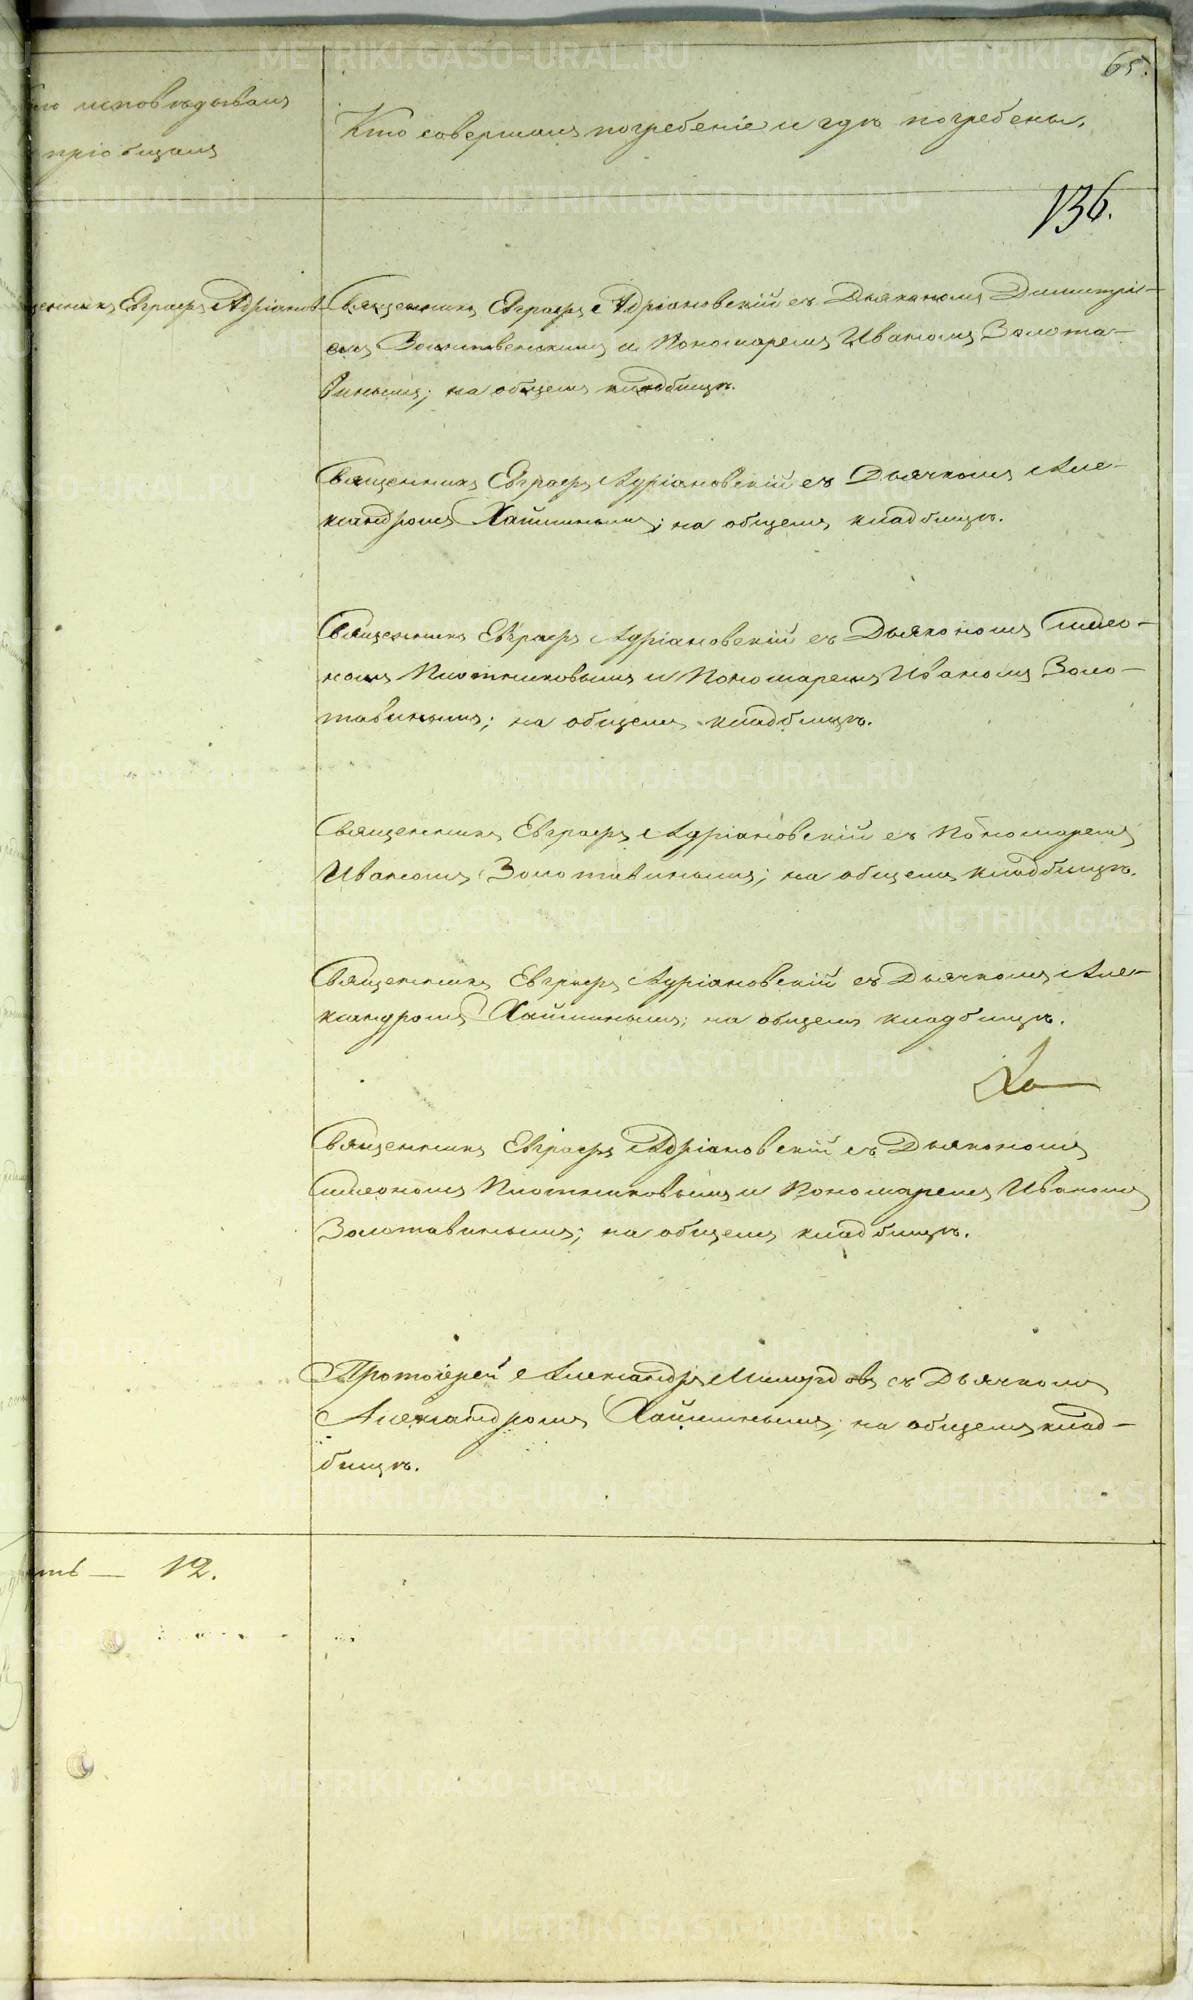 65.
Кто исповѣдывалъ
и пріобщалъ
Кто совершалъ погребеніе и гдѣ погребены.
136.
щенникъ Евграфъ Адріанов
Священникъ Евграфъ Адріановскій съ Дьякономъ Димитрі-
емъ и Пономаремъ Иваномъ Золота-
винымъ; на общемъ кладбищѣ.
Священникъ Евграфъ Адріановскій съ Дьячкомъ Але-
ксандромъ Хаминымъ; на общемъ кладбищѣ.
Священникъ Евграфъ Адріановскій съ Дьякономъ Симео-
номъ Плотниковымъ и Пономаремъ Иваномъ Золо-
тавинымъ; на общемъ кладбищѣ.
Священникъ Евграфъ Адріановскій съ Пономаремъ
Иваномъ Золотавинымъ; на общемъ кладбищѣ.
Священникъ Евграфъ Адріановскій съ Дьячкомъ Але-
ксандромъ Хаминымъ; на общемъ кладбищѣ.
Священникъ Евграфъ Адріановскій съ Дьякономъ
Симеономъ Плотниковымъ и Пономаремъ Иваномъ
Золотавинымъ; на общемъ кладбищѣ.
Протоіерей Александръ съ Дьячкомъ
Александромъ Хаминымъ; на общемъ клад-
бищѣ.
ть — 12.
METRIKI.GASO-URAL.RU